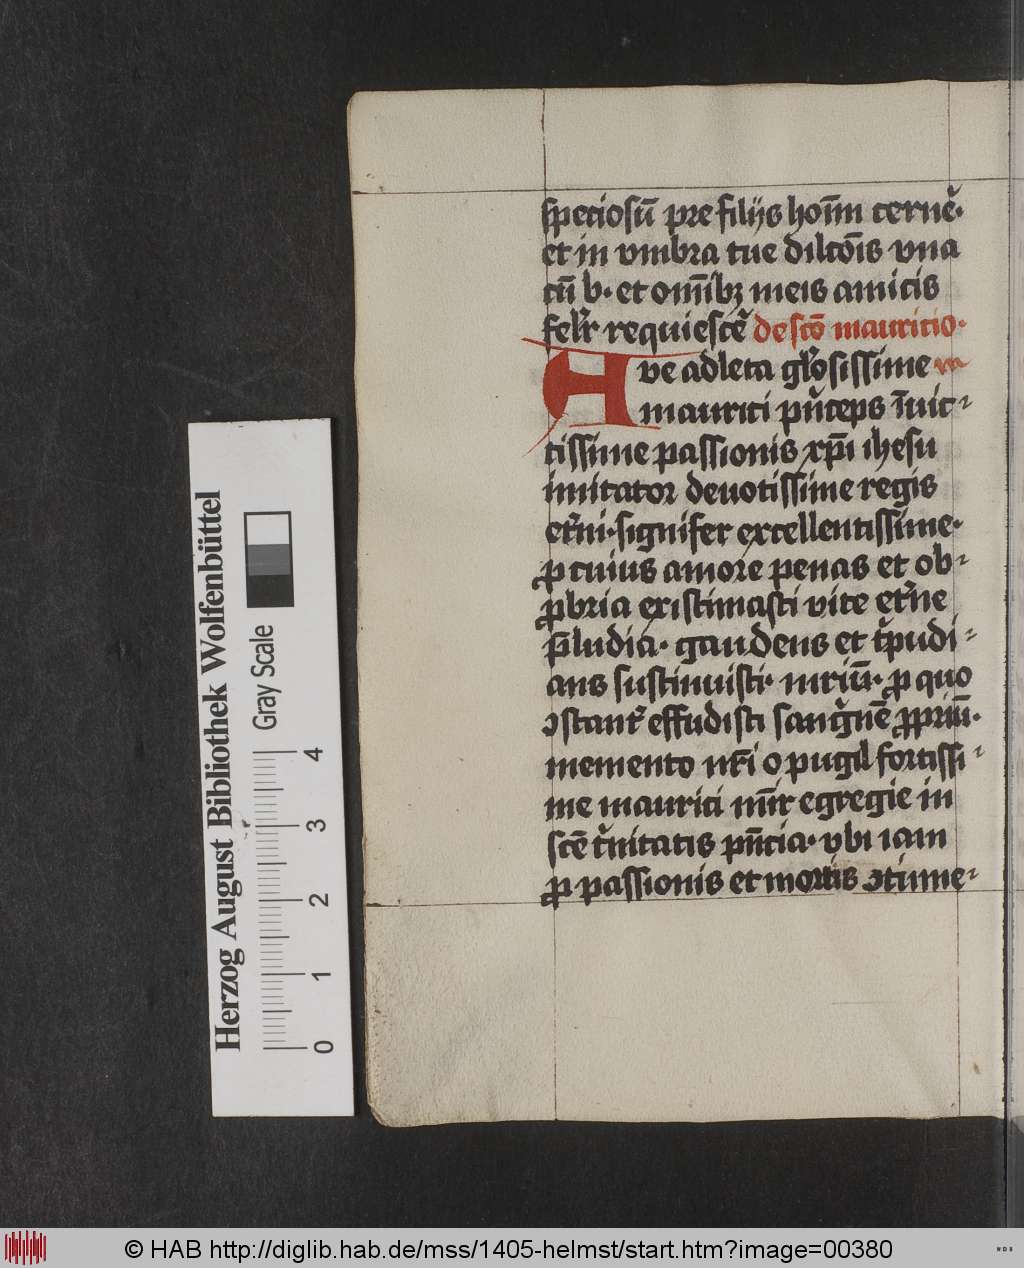 speciosū pre filijs hoīm cernē·
et in vmbra tue dilcōis vna
cū b· et om̄ibꝫ meis amicis
felr̄ requiescē de scō mauricio·
Ave adleta gl̄osissime m
mauriti pn̄ceps īuic-
tissime passionis xp̄i ihesu
imitator deuotissime regis
etn̄i· signifer excellentissime·
ꝓ cuius amore penas et ob-
ꝓbria existimasti vite etn̄e
p̄ludia· gaudens et tp̄udi-
ans sustinuisti· mr̄iū· ꝓ quo
ↄstant᷑ effudisti sangn̄ē ꝓpriū·
memento mei o pugil fortissi-
me mauriti mīr egregie in
scē tn̄itatis pn̄cia· vbi iam
ꝓ passionis et mortis ↄtime-
Herzog August Bibliothek Wolfenbüttel
Gray Scale
0 1 2 3 4
© HAB http://diglib.hab.de/mss/1405-helmst/start.htm?image=00380